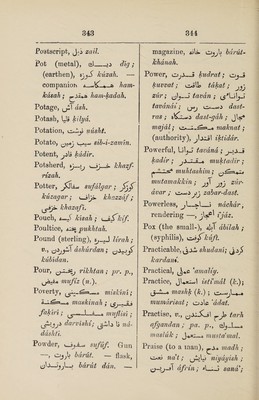 343
344
Postscript, ذیل zail.
Pot (metal), دیگ dig;
(earthen), کوزه kúzah. —
companion همکاسه ham-
kásah; همقدح ham-ḳadah.
Potage, آش ásh.
Potash, قلیا ḳilyá.
Potation, نوشت núsht.
Potato, سیب زمین sib-i-zamin.
Potent, قادر ḳádir.
Potsherd, خزف ریزه khazf-
rizah.
Potter, سفالگر sufálgar; کوزه گر
kúzagar; خزاف khazzáf;
خزفی khazafi.
Pouch, کیسه kisah; کیف kif.
Poultice, پخته pukhtah.
Pound (sterling), لیره lirah;
v., آشوردن áshúrdan; کوبیدن
kúbidan.
Pour, ریختن rikhtan; pr. p.,
مفیض mufíz (n.).
Poverty, مسکینی miskini;
مسکنه maskinah; فقیری
faḳiri; مفلسی muflisi;
درویشی darvishi; ناداشتی ná-
dáshti.
Powder, سفوف sufúf. Gun
—, باروت bárút. — flask,
باروت دان bárút dán. —
magazine, باروت خانه bárút-
khánah.
Power, قدرت ḳudrat; قوت
ḳuvvat; طاقت táḳat; زور
zúr; توان taván; توانائی
tavánái; دست رس dast-
ras; دستگاه dast-gáh; مجال
majál; مکنت maknat;
(authority), اقتدار iḳtidár.
Powerful, توانا tavána; قادر
ḳadir; مقتدر muḳtadir;
محتشم muhtashim; متمکن
mutamakkin; زور آور zúr-
ávar; زبر دست zabar-dast.
Powerless, ناچار náchár,
rendering —, اعجاز ijáz.
Pox (the small-), آبله ábilah;
(syphilis), کوفت kúft.
Practicable, شدنی shudani; کردنی
kardani.
Practical, عملی 'amaliy.
Practice, استعمال isti'mál (k.);
مشق mashk (k.); ممارست
mumáriast; عادت 'ádat.
Practise, v., طرح افکندن tarh
afgandan; pa. p., مسلوک
maslúk; مستعمل musta'mal.
Praise (to a man), مدح madh;
نعت na't; نیایش niyáyish;
آفرین áfrin; ثنا saná';